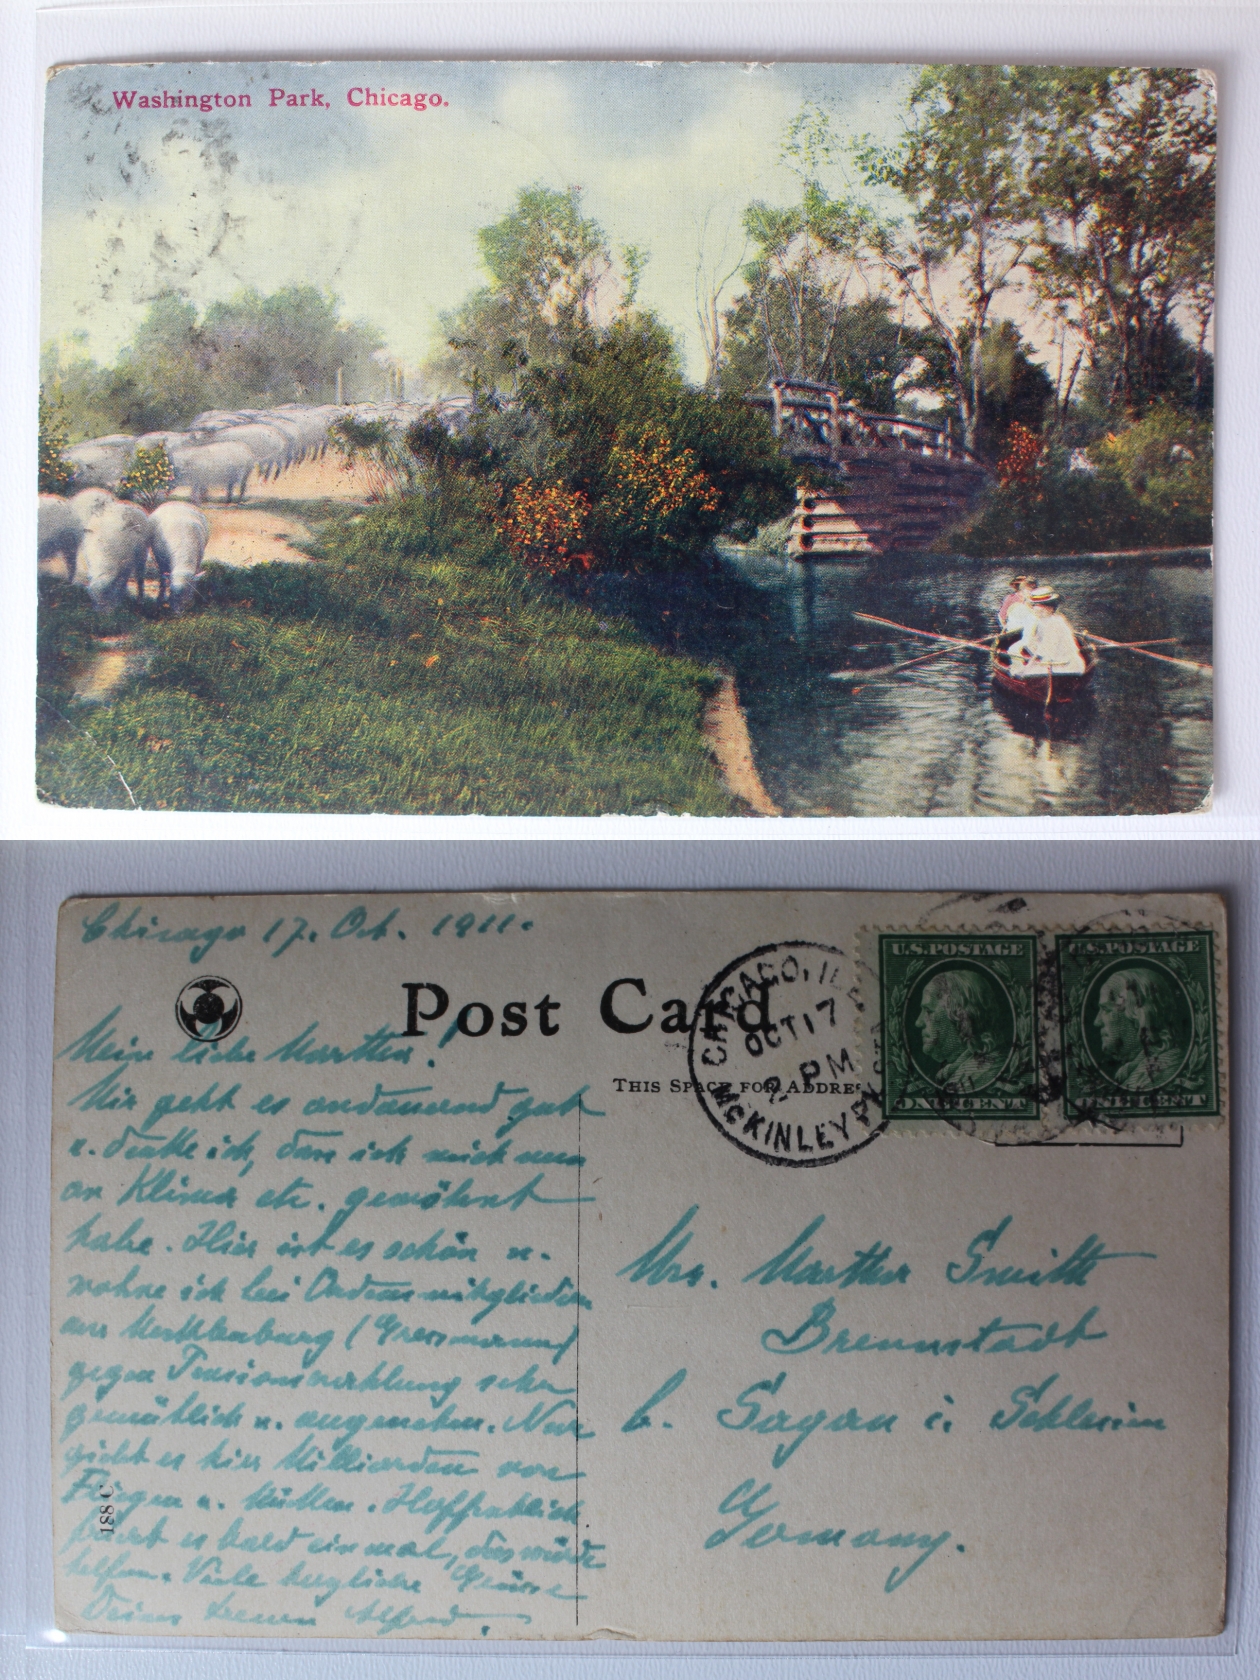 Washington Park, Chicago.
Chicago 17. Oct. 1911.
Post Card
THIS SPACE FOR ADDRE
CHICAGO, ILL.
OCT 17
2 PM
McKINLEY PK. STA
1911
U.S. POSTAGE
ONE CENT
U.S. POSTAGE
ONE CENT
Mein liebe Martha!
Mir geht es andauernd gut
u. denke ich, dass ich mich nun
an Klima etc. gewöhnt
habe. Hier ist es schön u.
wohne ich bei Ordensmitgliedern
aus Mecklenburg (Gressmann)
gegen Pensionszahlung sehr
gemütlich u. angenehm. Nur
giebt es hier Milliarden von
Fliegen u. Mücken. Hoffentlich
es bald einmal, das würde
helfen. Viele herzliche Grüsse
Deines treuen Alfred.
188 C
Mrs. Martha Smith
Brennstadt
b. Sagan i. Schlesien
Germany.